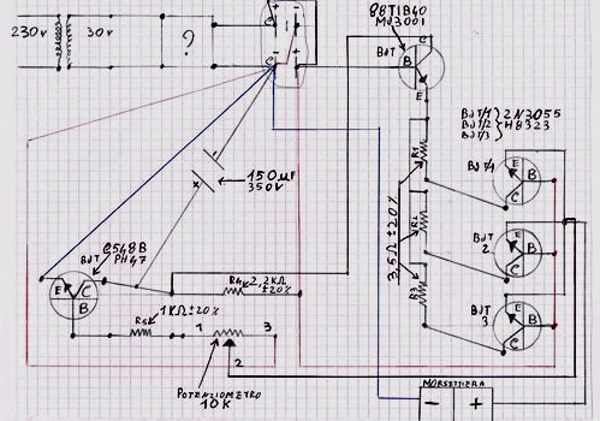 230v
30v
?
88T1B40
MJ3001
BJT
C
B
E
BJT/1 } 2N3055
BJT/2 } H8323
BJT/3
R1
R2
R3
3,5Ω ±20%
BJT/1
E
B
C
BJT
2
E
B
C
BJT
3
E
B
C
150µF
350V
C548B
PH47
BJT
E
C
B
R4
2,2KΩ
±20%
R5
1KΩ±20%
1
3
2
POTENZIOMETRO
10K
MORSETTIERA
- +